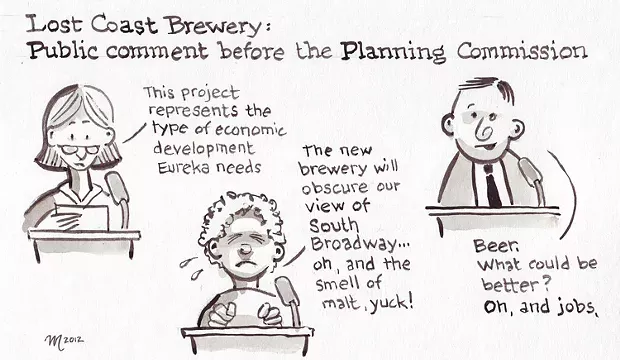 Lost Coast Brewery:
Public comment before the Planning Commission
This project
represents the
type of economic
development
Eureka needs
The new
brewery will
obscure our
view of
South
Broadway...
oh, and the
smell of
malt, yuck!
Beer.
What could be
better?
Oh, and jobs.
M 2012